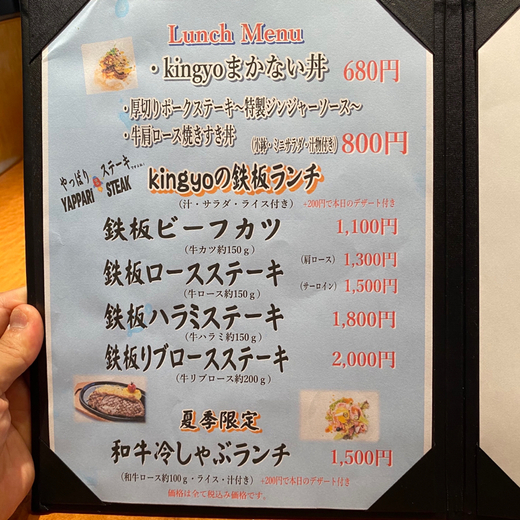 Lunch Menu
・kingyoまかない丼 680円
・厚切りポークステーキ～特製ジンジャーソース～
・牛肩ロース焼きすき丼 (小鉢・ミニサラダ・汁物付き) 800円
やっぱりステーキ
YAPPARI STEAK
kingyoの鉄板ランチ
(汁・サラダ・ライス付き) +200円で本日のデザート付き
鉄板ビーフカツ 1,100円
(牛カツ約150g)
鉄板ロースステーキ (肩ロース) 1,300円
(牛ロース約150g) (サーロイン) 1,500円
鉄板ハラミステーキ 1,800円
(牛ハラミ約150g)
鉄板リブロースステーキ 2,000円
(牛リブロース約200g)
夏季限定
和牛冷しゃぶランチ 1,500円
(和牛ロース約100g・ライス・汁付き) +200円で本日のデザート付き
価格は全て税込み価格です。